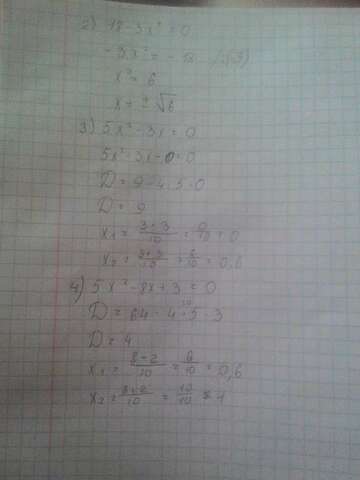 2) 18-3x²=0
-3x²=-18 /:(-3)
x²=6
x=±√6
3) 5x²-3x=0
5x²-3x-0=0
D=9-4·5·0
D=9
x₁=(3-3)/10=0/10=0
x₂=(3+3)/10=6/10=0,6
4) 5x²-8x+3=0
D=64-4·5·3
D=4
x₁=(8-2)/10=6/10=0,6
x₂=(8+2)/10=10/10=1